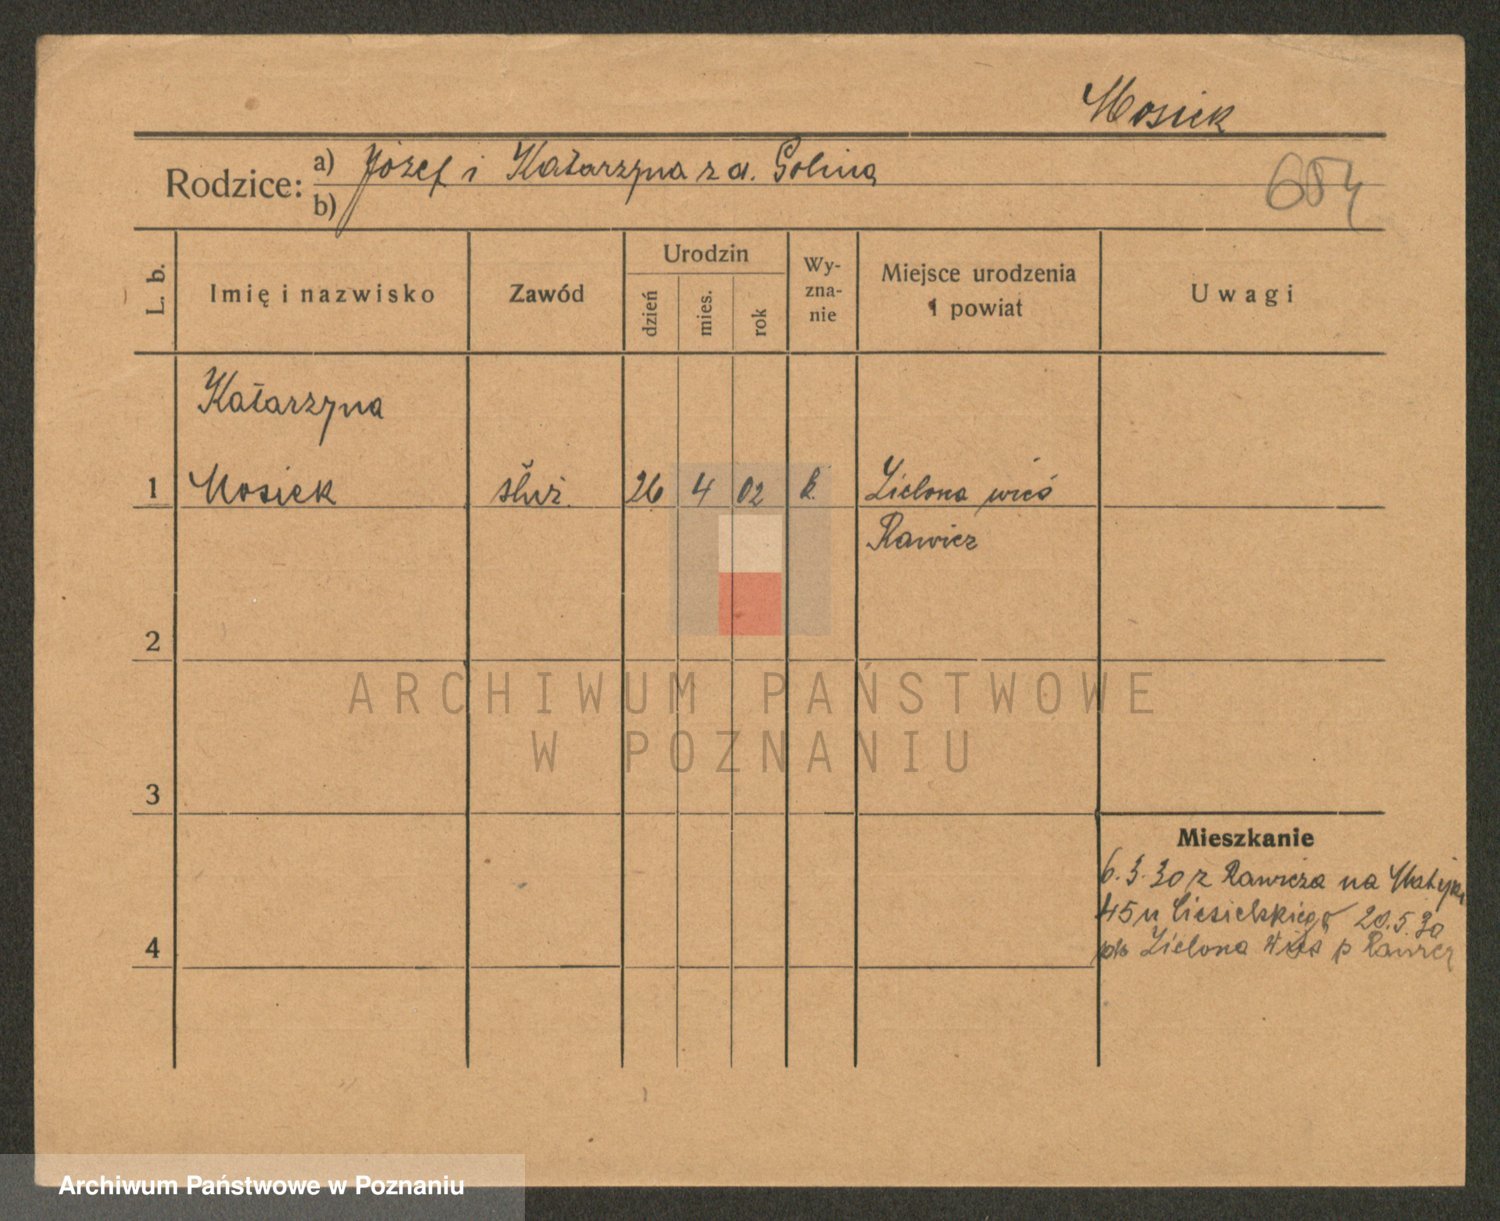 Mosiek
Rodzice: a) Józef i Katarzyna z d. Golina
b)
684
L. b.
Imię i nazwisko
Zawód
Urodzin
dzień
mies.
rok
Wy-
zna-
nie
Miejsce urodzenia
i powiat
Uwagi
Katarzyna
1 Mosiek służ. 26 4 02 k. Zielona wieś
Rawicz
2
3
4
ARCHIWUM PAŃSTWOWE
W POZNANIU
Mieszkanie
6.3.30 z Rawicza na Matejki
45 u Ciesielskiego 20.5.30
do Zielona Wieś p Rawicz
Archiwum Państwowe w Poznaniu